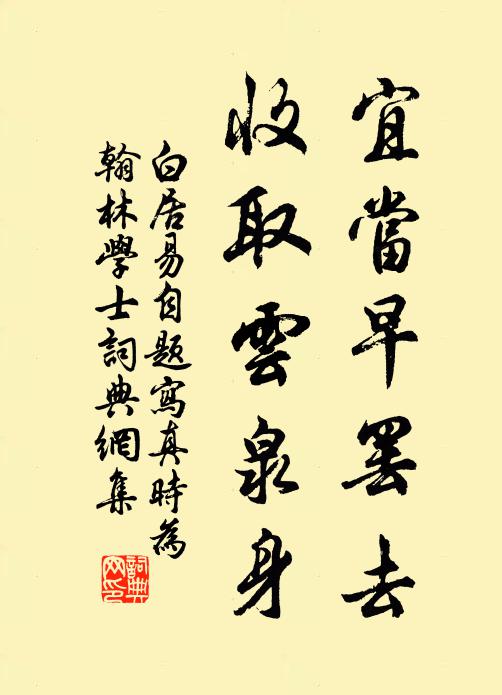 宜當早罷去
收取雲泉身
白居易自題寫真時為
翰林學士詞典網集
詞典網印